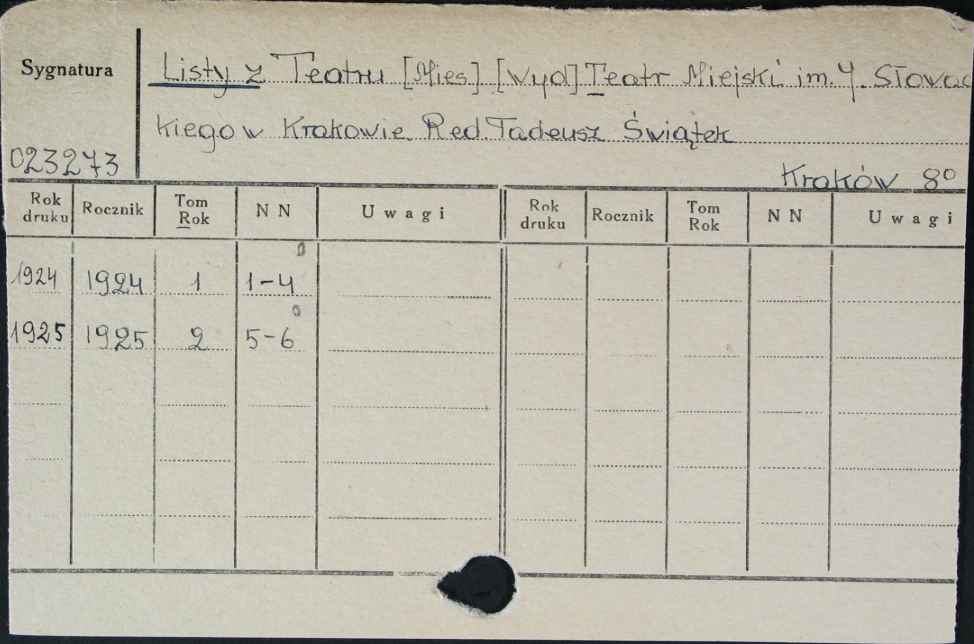 Sygnatura
Listy z Teatru [Mies] [Wyd] Teatr Miejski im. J. Słowac
kiego w Krakowie Red. Tadeusz Świątek
023273
Kraków 8°
Rok druku Rocznik Tom Rok N N Uwagi Rok druku Rocznik Tom Rok N N Uwagi
1924 1924 1 1-4
1925 1925 2 5-6